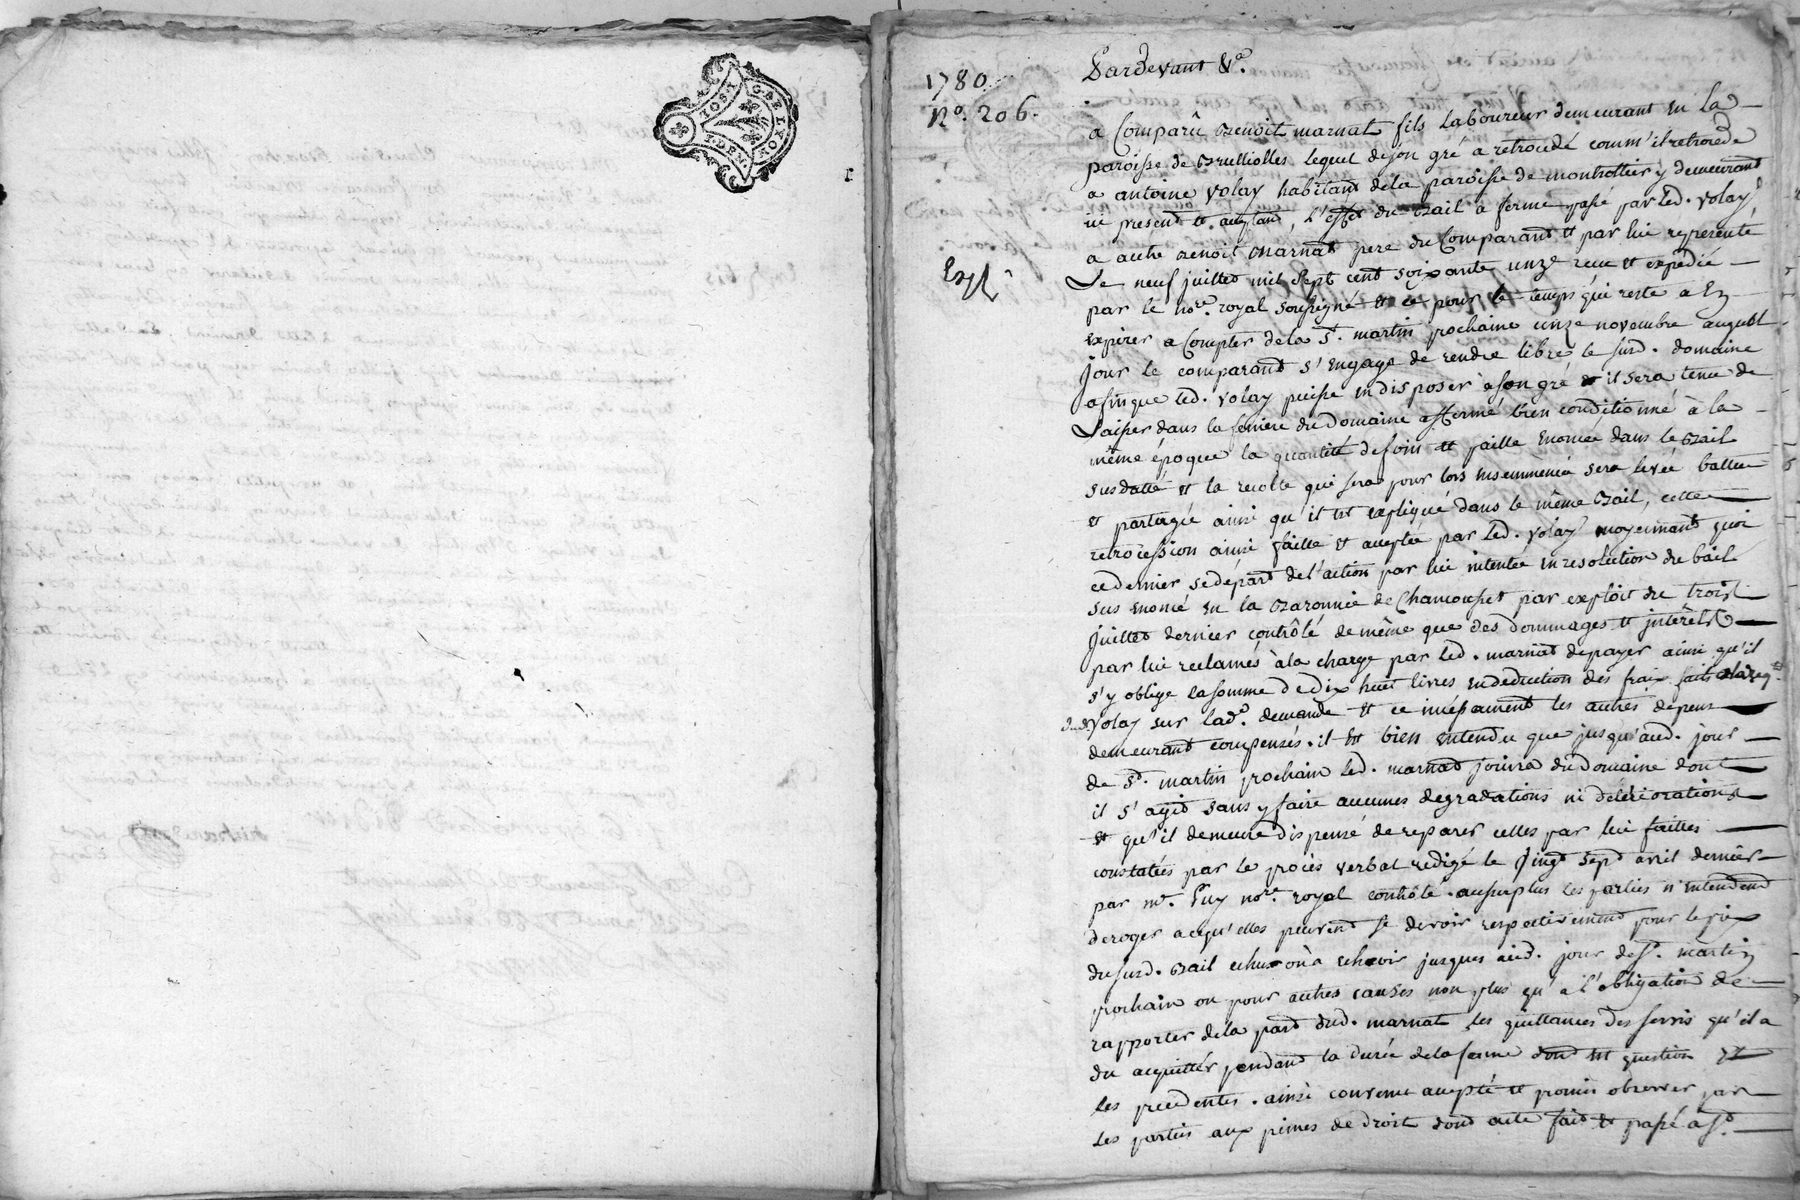 GEN. DE LYON
1780.
No. 206.
Pardevant &a.
a Comparû Benoit marnat fils Laboureur demeurant en la
paroisse de Brulliolles lequel deson gré a retrocedé comm'il retrocede
a antoine Volay habitant dela paroisse de montrottier y demeurant
ici present et aceptant, L'effet du Bail a ferme passé par led. Volay
a autre Benoit Marnat pere du Comparant et par lui representé
Expé.
Le neuf juillet mil sept cent soixante unze recu et expedié
par le nore. royal soussigné et ce pour le temps qui reste a En
expirer a Compter dela St. martin prochaine unze novembre auquel
jour le comparant s'engage de rendre libre le susd. domaine
afinque led. Volay puisse en disposer àson gré et il sera tenu de
Laisser dans la feniere du domaine affermé bien conditionné à la
même époque la quantité de foin et paille enoncée dans le Bail
susdatté et la recolte qui sera pour lors ensemmencée sera levée battue
et partagée ainsi qu'il est expliqué dans le même Bail, cette
retrocession ainsi faitte et aceptée par led. Volay moyennant quoi
ce dernier se départ de l'action par lui intentée en resolution du bail
sus enoncé en la Baronnie de Chamousset par exploit du trois
juillet dernier contrôlé de même que des dommages et jnterêts
par lui reclamés à la charge par led. marnat de payer ainsi qu'il
s'y oblige la somme de Dix huit livres en deduction des fraix faits
dud. Volay sur lade. demande et ce incéssament les autres depens
demeurant compensés. il est bien entendu que jusqu'aud. jour
de St. martin prochain led. marnat jouira du domaine dont
il s'agit sans y faire aucunes degradations ni deteriorations
et qu'il demeure dispensé de reparer celles par lui faittes
constatées par le procès verbal redigé le vingt sept avril dernier
par me. Guy nore. royal contrôlé. au surplus les parties n'entendent
deroger a cequ'elles peuvent se devoir respectivement pour le prix
dususd. Bail echu ou à echeoir jusques aud. jour de St. martin
prochain ou pour autres causes non plus qu'a l'obligation de
rapporter dela part dud. marnat les quittances des servis qu'il a
du acquitter pendant la durée de la ferme dont est question et
les precedentes. ainsi convenu acepté et promis observer par
les parties aux peines de droit dont acte fait et passé a St.